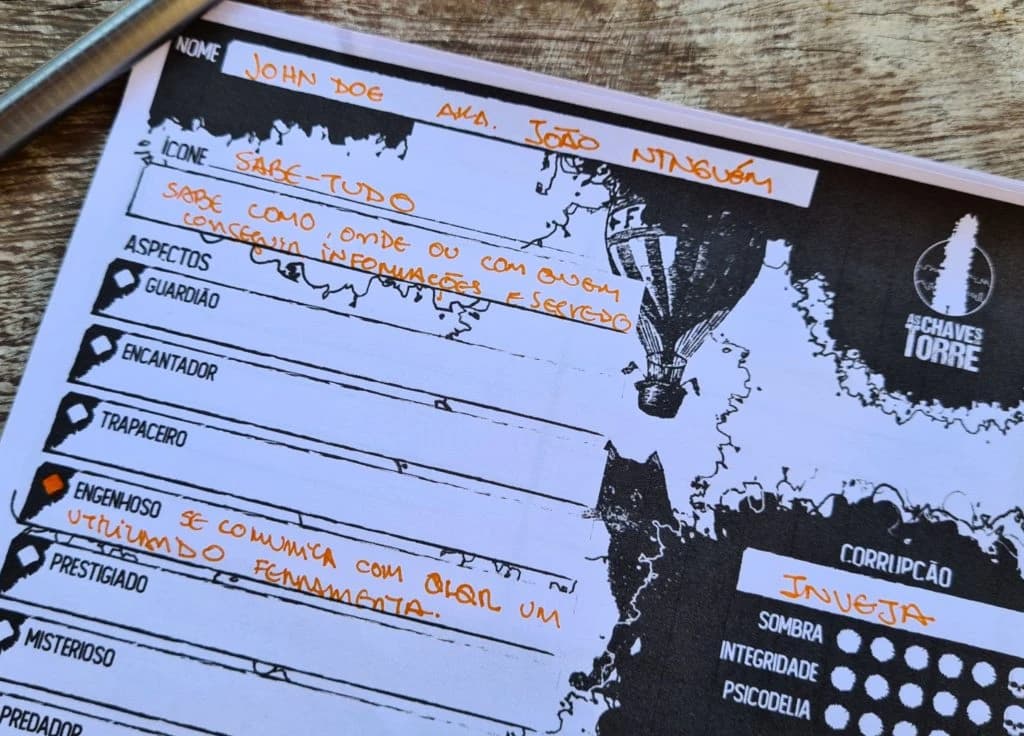 NOME JOHN DOE AKA. JOÃO NINGUÉM
ÍCONE SABE-TUDO
SABE COMO, ONDE OU COM QUEM
CONSEGUIR INFORMAÇÕES E SEGREDO
AS CHAVES
TORRE
ASPECTOS
GUARDIÃO
ENCANTADOR
TRAPACEIRO
ENGENHOSO SE COMUNICA COM QLQR UM
UTILIZANDO FERRAMENTA.
PRESTIGIADO
MISTERIOSO
PREDADOR
CORRUPÇÃO
INVEJA
SOMBRA
INTEGRIDADE
PSICODELIA